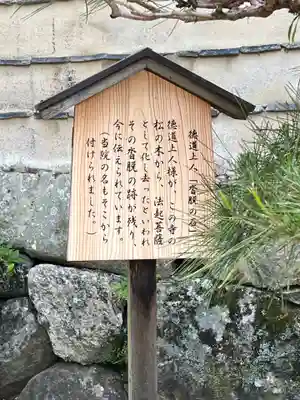 徳道上人「沓脱の石」
徳道上人様が、この寺の
松の木から、法起菩薩
として化し去ったといわれ
その沓脱の跡が残り、
今に伝えられています。
(当院の名もそこから
付けられました。)